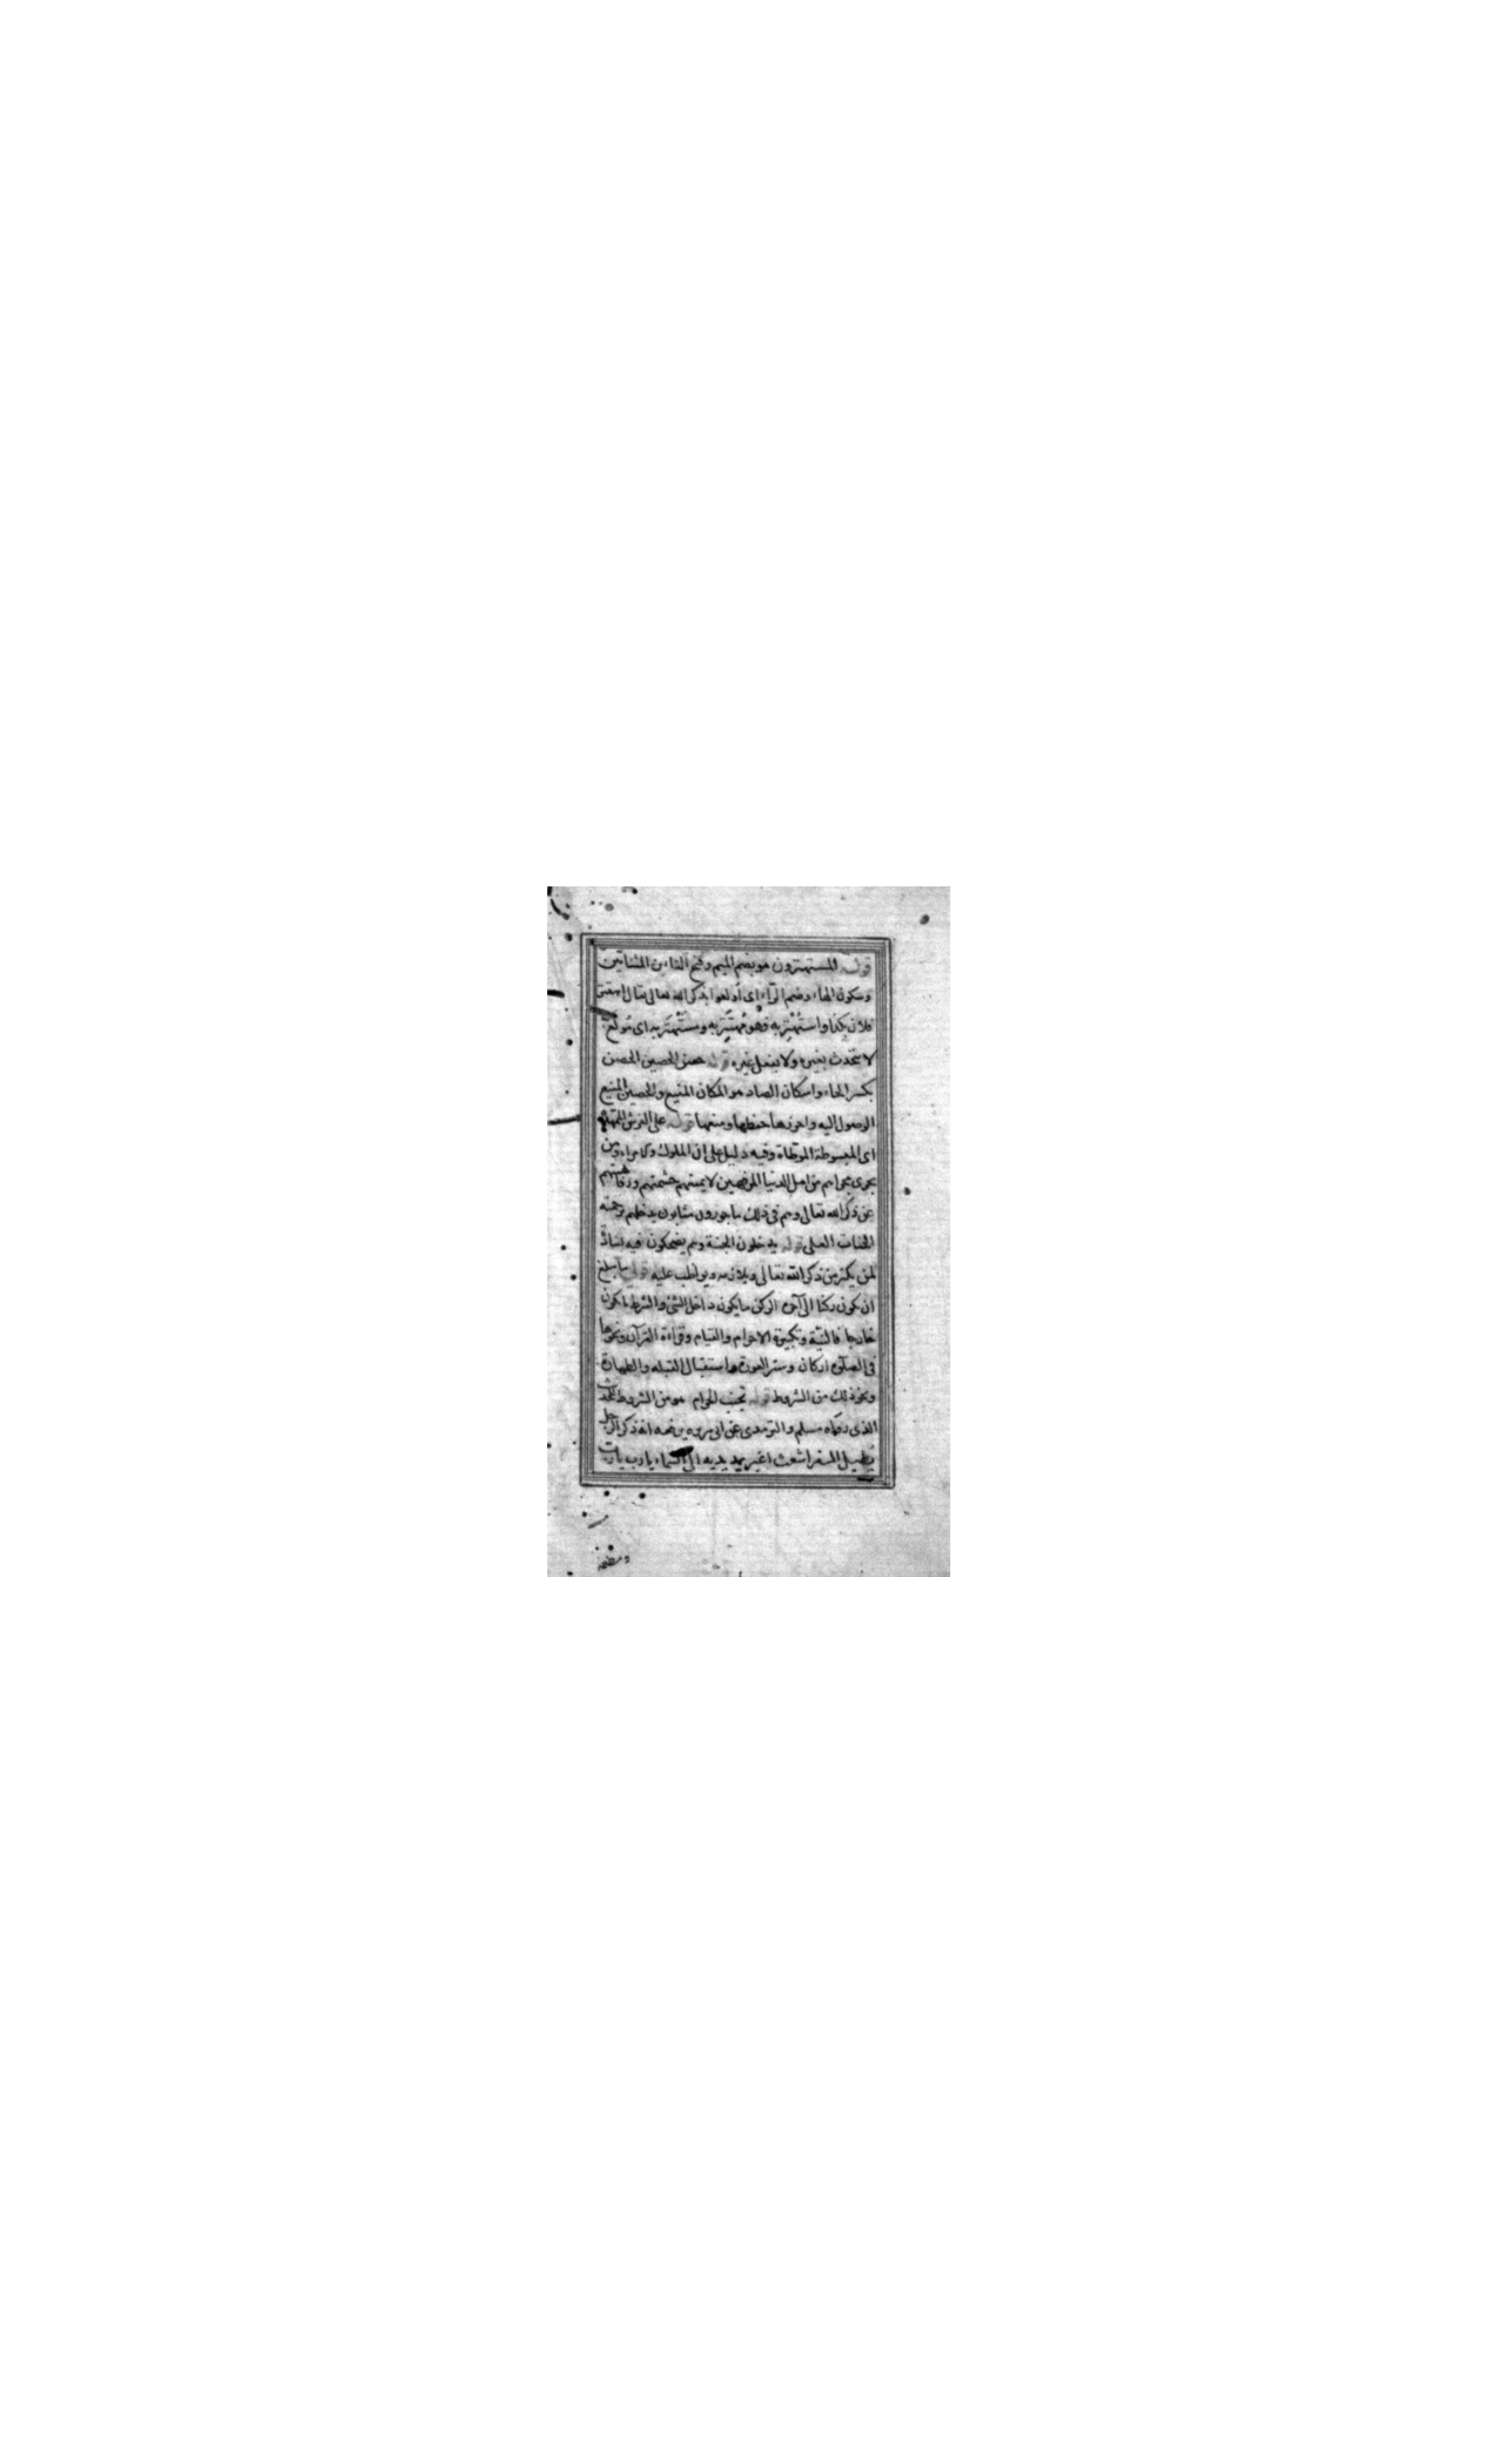 قوله المستهترون هو بضم الميم وفتح التاءين المثناتين
وسكون الهاء وضم الراء اى أولعوا بذكر الله تعالى يقال استهتر
فلان بكذا واستُهْتِر به فهو مُهتَر به ومستَهتَر به اى مُولَع
لا يتحدث بغيره ولا يفعل غيره قوله حصن الحصين الحصن
بكسر الحاء واسكان الصاد هو المكان المنيع والحصين المنيع
الوصول اليه واحرزها حفظها ومنعها قوله على الفرش الممهدة
اى المبسوطة الموطاة وفيه دليل على ان الملوك والامراء ومن
يجرى مجراهم من اهل الدنيا المرفهين لا يمنعهم حشمتهم ورفاهيتهم
عن ذكر الله تعالى وهم فى ذلك ماجورون مثابون يدخلهم برحمته
الجنات العلى قوله يدخلون الجنة وهم يضحكون فيه بشارة
لمن يكثر من ذكر الله تعالى ويلازمه ويواظب عليه قوله ما يبلغ
ان يكون ركنا الى آخره الركن ما يكون داخل الشئ والشرط ما يكون
خارجا فالنية وتكبيرة الاحرام والقيام وقراءة القرآن ونحوها
فى الصلوة اركان وستر العورة واستقبال القبلة والطهارة
ونحو ذلك من الشروط قوله تجنب الحرام هو من الشروط للحديث
الذى رواه مسلم والترمذى عن ابى هريرة يرفعه انه ذكر الرجل
يُطيل السفر اشعث اغبر يمد يديه الى السماء يا رب يا رب
ومطعمه